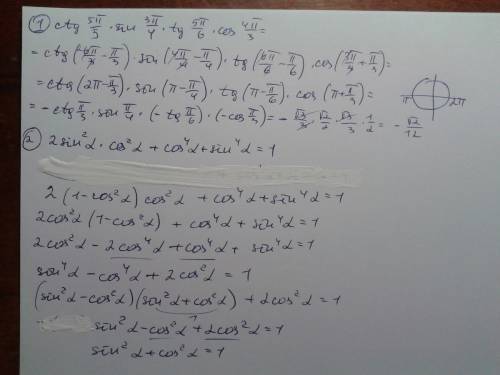 ① ctg 5π/5 · sin 3π/4 · tg 5π/6 · cos 4π/3 =
= ctg (6π/3 − π/3) · sin (4π/4 − π/4) · tg (6π/6 − π/6) · cos (3π/3 + π/3) =
= ctg (2π − π/3) · sin (π − π/4) · tg (π − π/6) · cos (π + π/3) =
π 2π
= − ctg π/3 · sin π/4 · (− tg π/6) · (− cos π/3) = − √3/3 · √2/2 · √3/3 · 1/2 = − √2/12
② 2 sin²α · cos²α + cos⁴α + sin⁴α = 1
2 (1 − cos²α) cos²α + cos⁴α + sin⁴α = 1
2cos²α (1 − cos²α) + cos⁴α + sin⁴α = 1
2cos²α − 2cos⁴α + cos⁴α + sin⁴α = 1
sin⁴α − cos⁴α + 2cos²α = 1
(sin²α − cos²α)(sin²α + cos²α) + 2cos²α = 1
1
sin²α − cos²α + 2cos²α = 1
sin²α + cos²α = 1